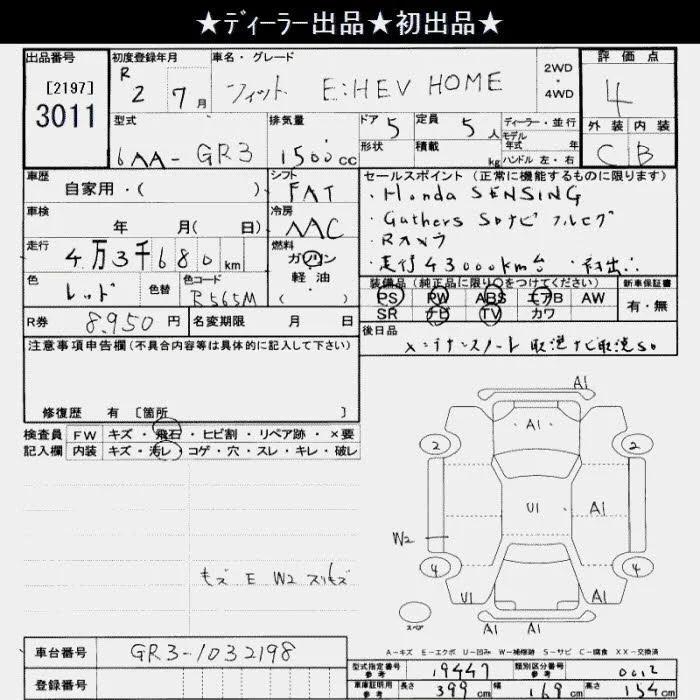 ★ディーラー出品★初出品★
出品番号 初度登録年月 車名・グレード 2WD・4WD 評価点
[2197] R 2 7月 フィット E:HEV HOME 4
3011
型式 排気量 ドア 5 定員 5人 ディーラー・並行 外装 内装
6AA-GR3 1500cc 形状 積載 kg モデル年式 年 ハンドル 左・右 C B
車歴 シフト セールスポイント (正常に機能するものに限ります)
自家用・( ) FAT ・Honda SENSING
車検 冷房 ・Gathers SDナビ フルセグ
年 月( 日) AAC ・Rカメラ
走行 燃料 ・走行43000km台 ・初出品
4万3千680km ガソリン 軽油 ( )
色 色替 色コード 装備品 (純正品に限り○をつけてください) 新車保証書
レッド R565M PS PW ABS エアB AW 有・無
R券 8,950円 名変期限 月 日 SR ナビ TV カワ
注意事項申告欄(不具合内容等は具体的に記入して下さい) 後日品
メンテナンスノート 取説 ナビ取説 SD
修復歴 有 [箇所 ]
検査員 FW キズ・飛石・ヒビ割・リペア跡・×要
記入欄 内装 キズ・汚レ・コゲ・穴・スレ・キレ・破レ
A1
A1
2 2
U1 A1
W2
4 4
U1 A1
キズ E W2 スリキズ
スペア A1 A1
A-キズ E-エクボ U-凹み W-補修跡 S-サビ C-腐食 XX-交換済
車台番号 GR3-1032198
登録番号
型式指定番号参考 19447 類別区分番号参考 0012
車庫証明用参考 長さ 399cm 幅 169cm 高さ 154cm